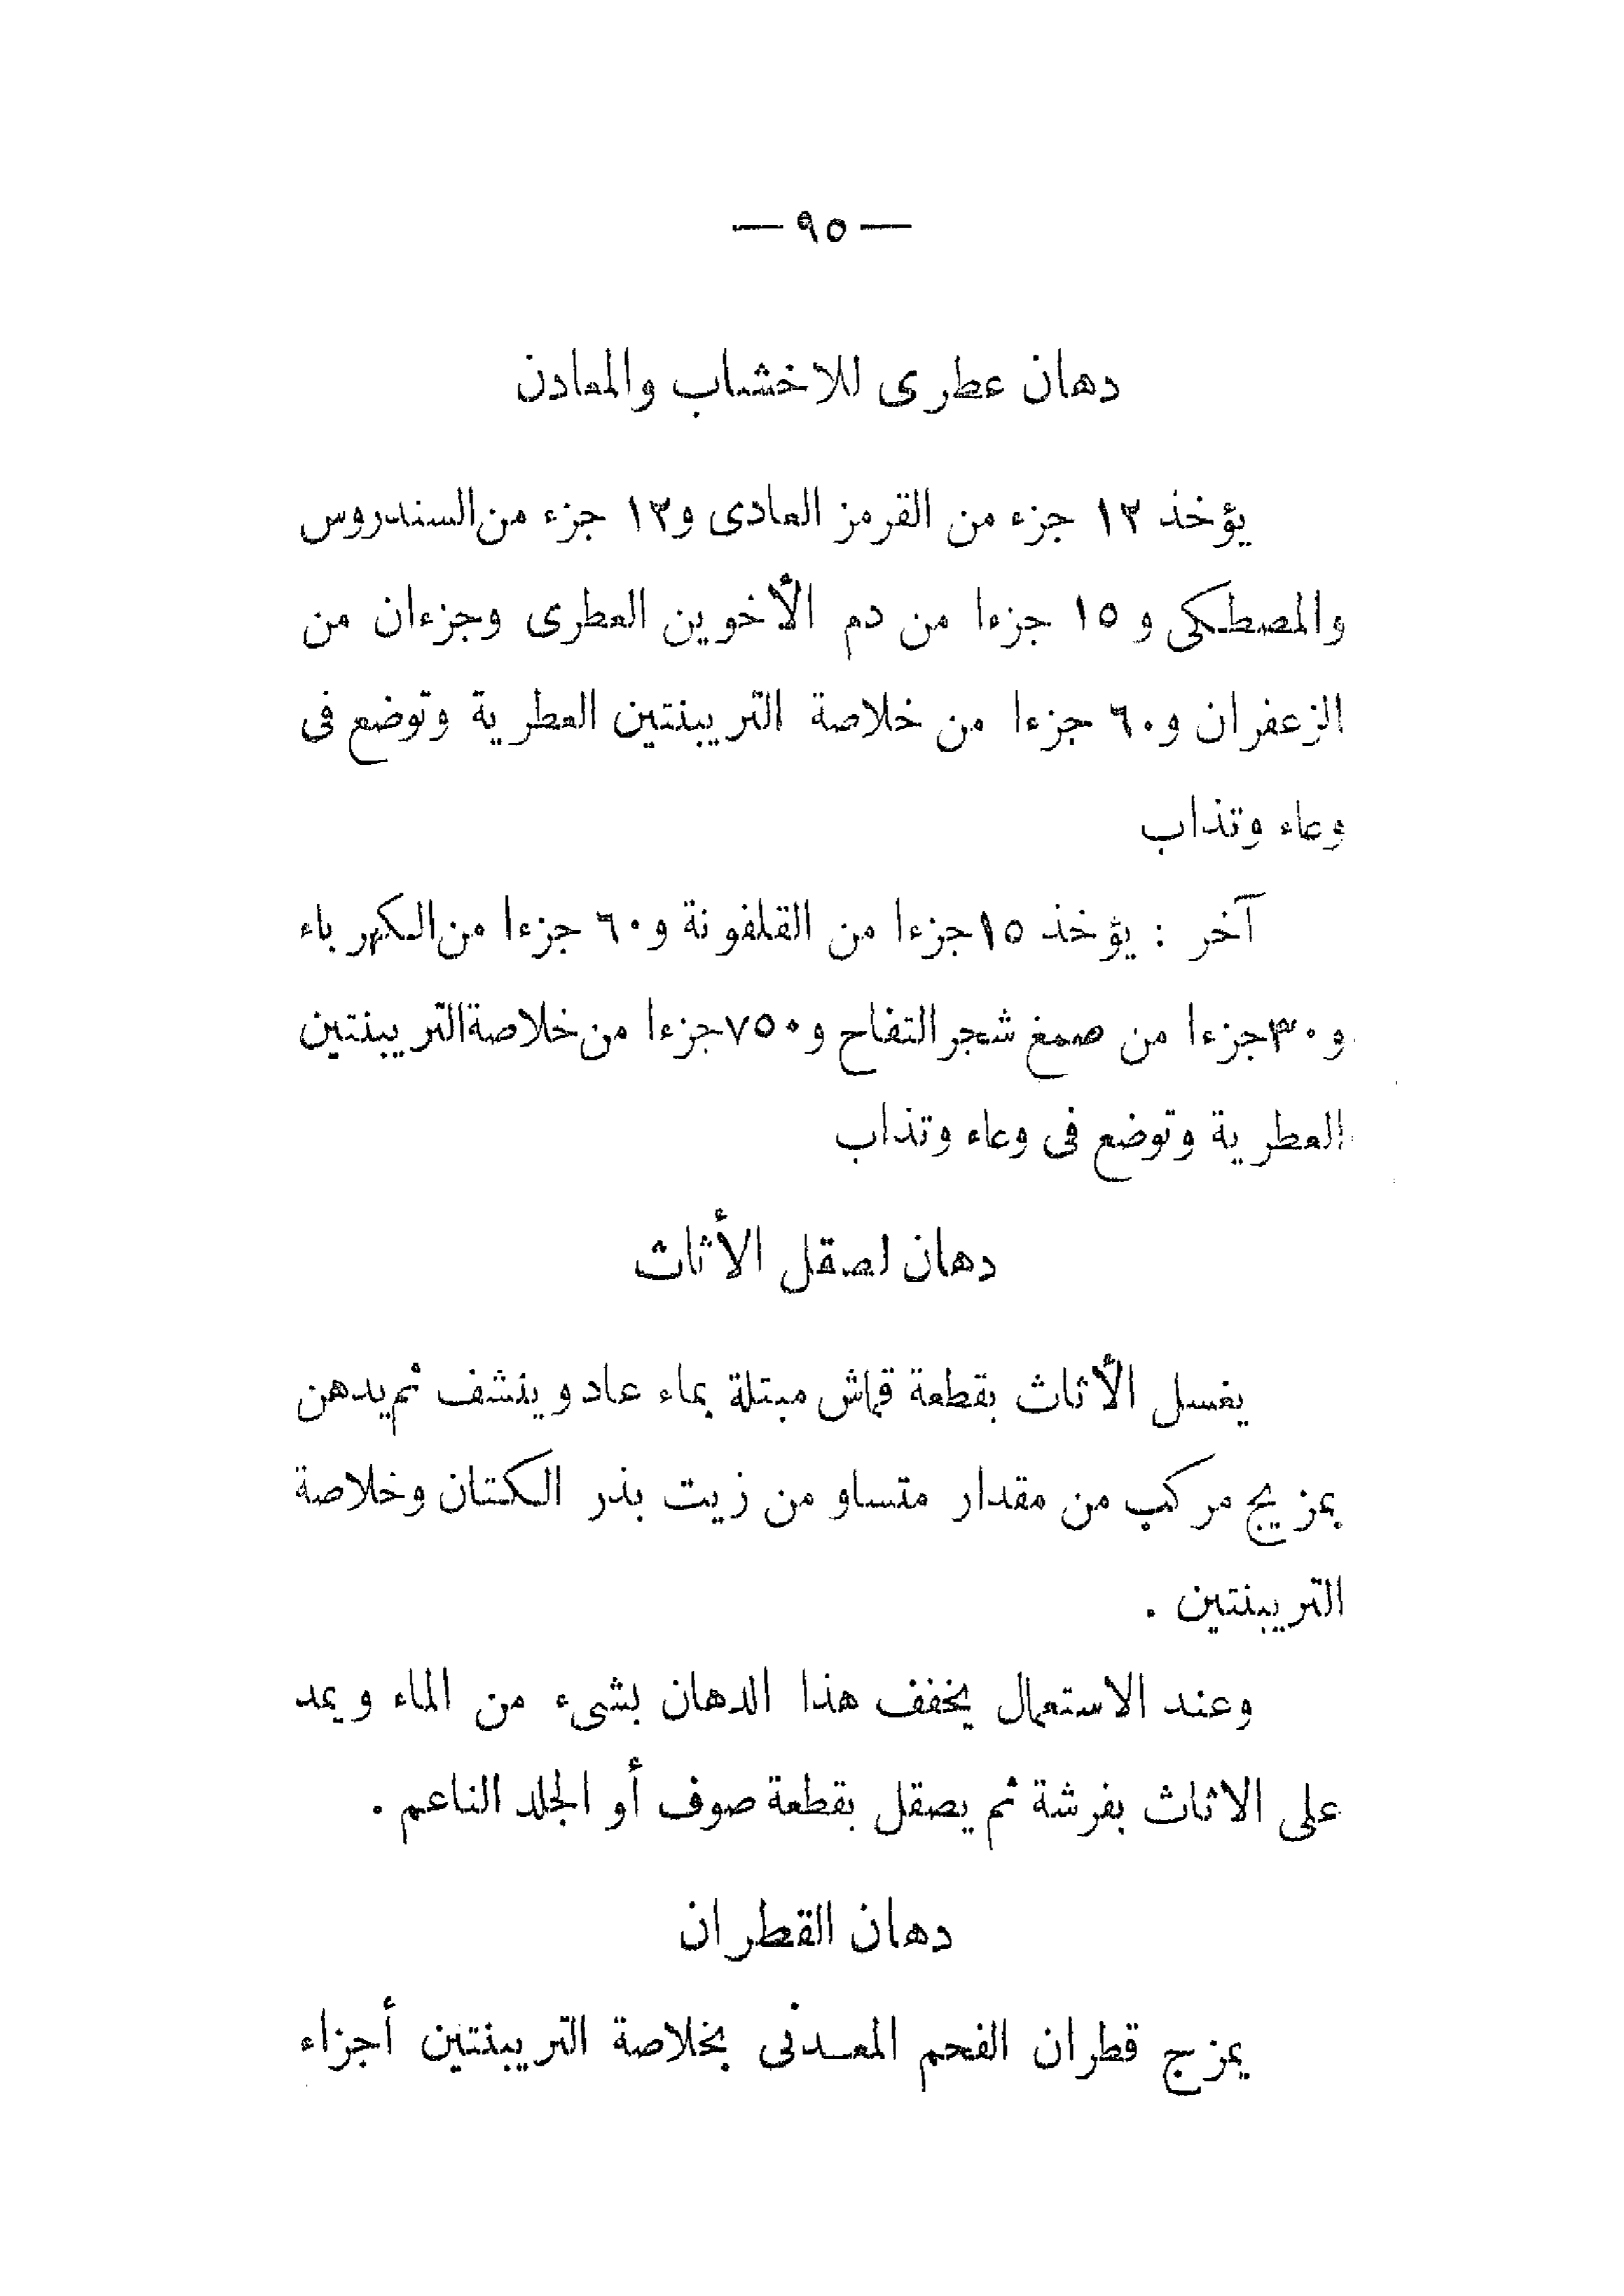 — ٩٥ —
دهان عطرى للاخشاب والمعادن
يؤخذ ١٣ جزء من القرمز العادى و١٣ جزء من السندروس
والمصطكى و ١٥ جزءا من دم الأخوين العطرى وجزءان من
الزعفران و٦٠ جزءا من خلاصة التربينتين العطرية وتوضع فى
وعاء وتذاب
آخر : يؤخذ ١٥جزءا من القلفونة و٦٠ جزءا من الكهرباء
و٣٠جزءا من صمغ شجر التفاح و٧٥٠جزءا من خلاصة التربينتين
العطرية وتوضع فى وعاء وتذاب
دهان لصقل الأثاث
يغسل الأثاث بقطعة قماش مبتلة بماء عاد وينشف ثم يدهن
بمزيج مركب من مقدار متساو من زيت بذر الكتان وخلاصة
التربينتين .
وعند الاستعمال يخفف هذا الدهان بشىء من الماء ويمد
على الاثاث بفرشة ثم يصقل بقطعة صوف أو الجلد الناعم .
دهان القطران
يمزج قطران الفحم المعدنى بخلاصة التربينتين أجزاء